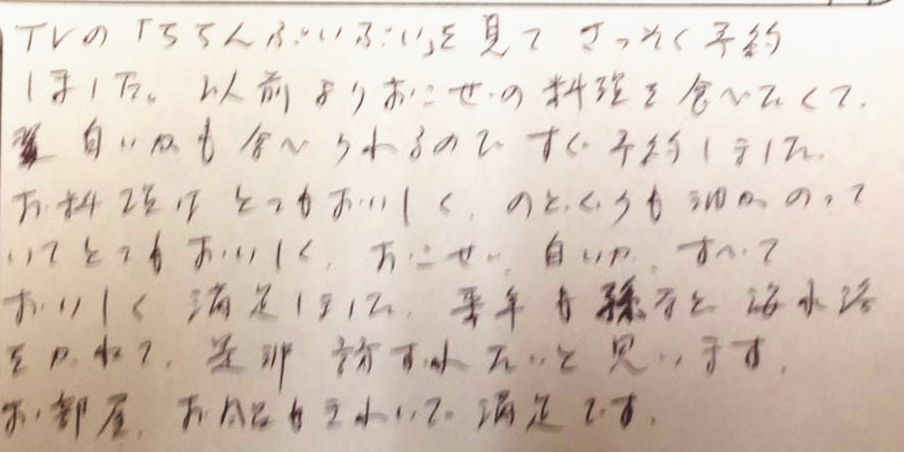 TVの「ちちんぷいぷい」を見て さっそく予約
しました。以前よりおこぜの料理を食べたくて、
白いかも食べられるので すぐ予約しました。
お料理は とってもおいしく、のどぐろも油がのって
いてとってもおいしく、おこぜ、白いか、すべて
おいしく満足しました。来年も孫等と海水浴
をかねて、是非訪ずれたいと思います。
お部屋、お風呂もきれいで満足です。